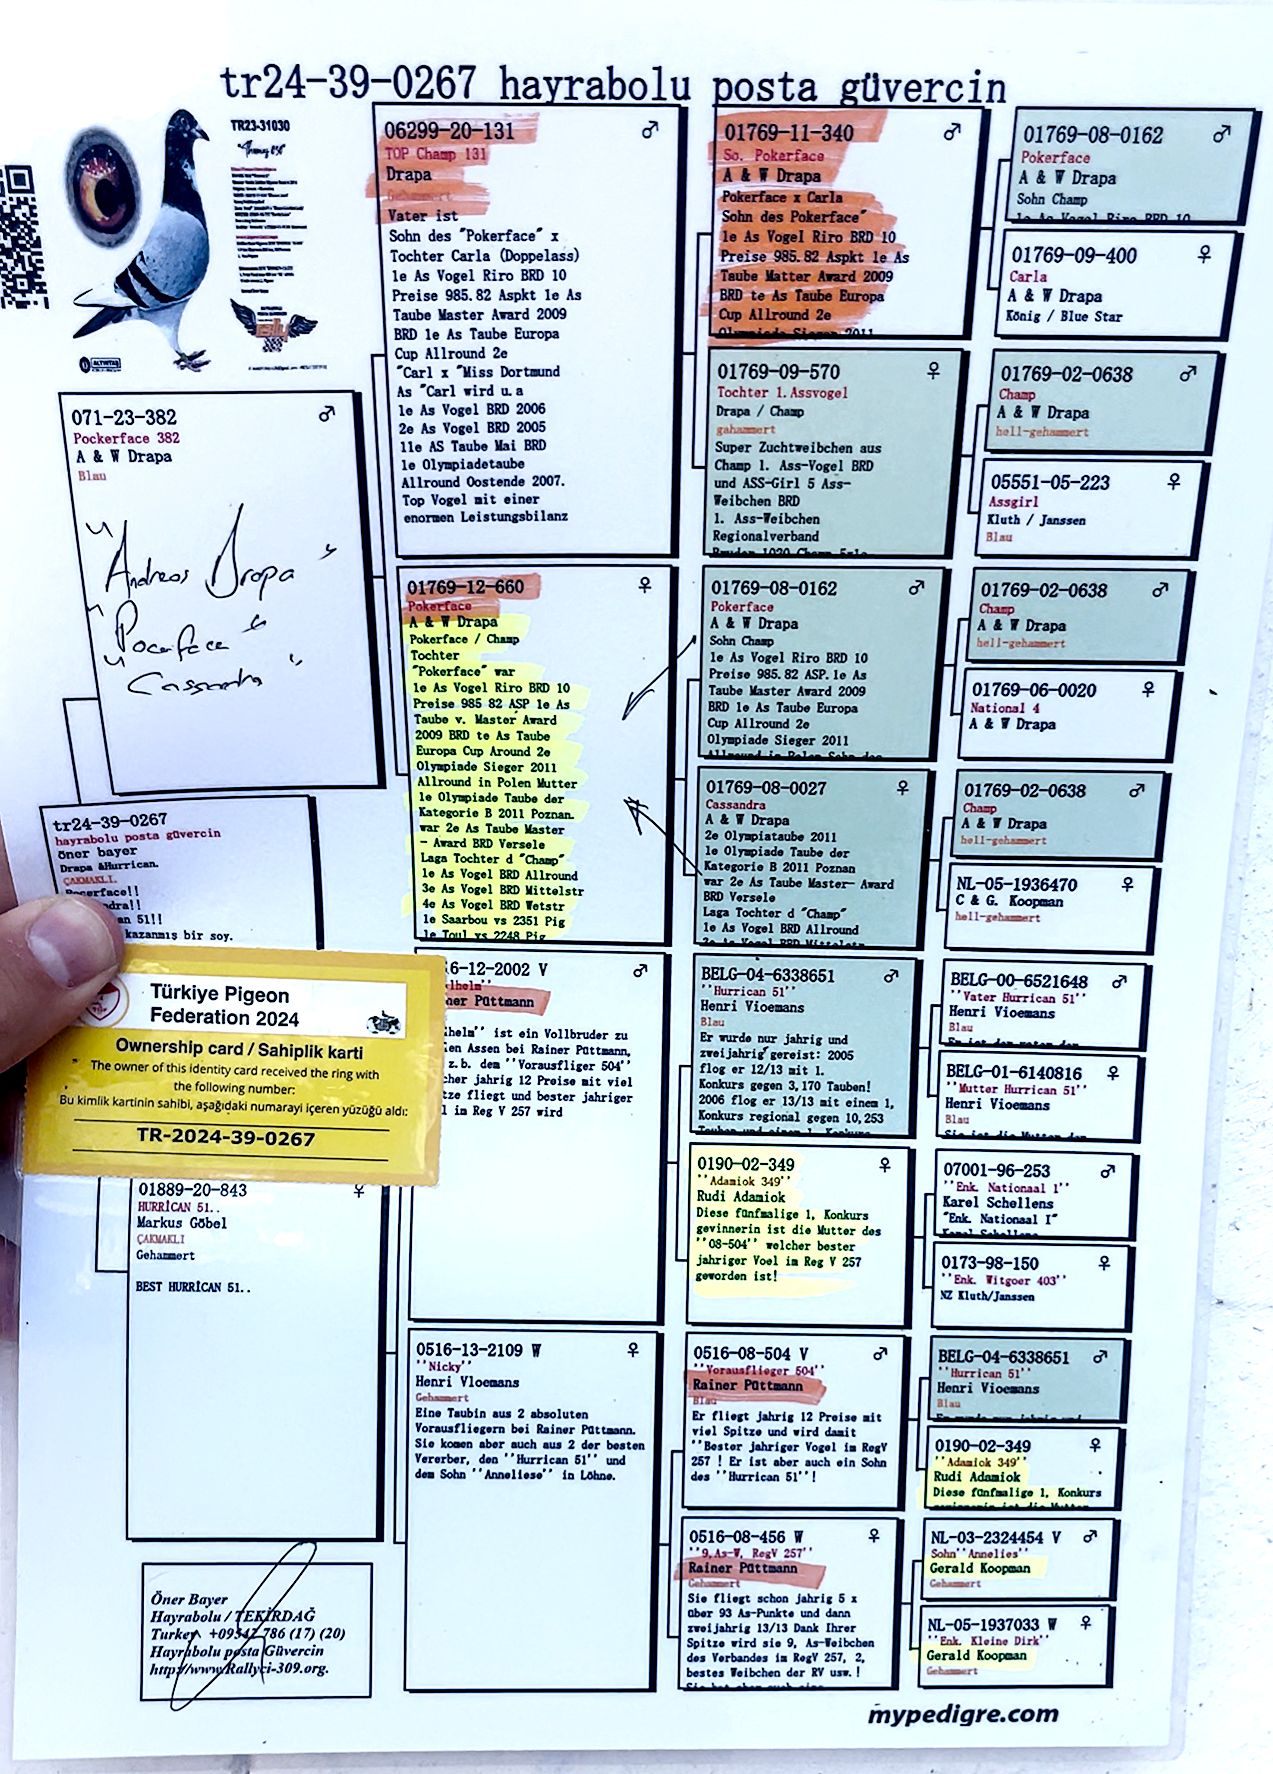 tr24-39-0267 hayrabolu posta güvercin
TR23-31030
071-23-382 ♂
Pockerface 382
A & W Drapa
Blau
"Andreas Drapa"
"Pocerface"
"Cassandra"
tr24-39-0267
hayrabolu posta güvercin
öner bayer
Drapa &Hurrican.
ÇAKMAKLI.
kazanmış bir soy.
Türkiye Pigeon
Federation 2024
Ownership card / Sahiplik karti
The owner of this identity card received the ring with
the following number:
Bu kimlik kartinin sahibi, aşağıdaki numarayi içeren yüzüğü aldı:
TR-2024-39-0267
01889-20-843 ♀
HURRİCAN 51..
Markus Göbel
ÇAKMAKLI
Gehammert
BEST HURRİCAN 51..
Öner Bayer
Hayrabolu / TEKİRDAĞ
Turkey +09542 786 (17) (20)
Hayrabolu posta Güvercin
http://www.Rallyci-309.org.
06299-20-131 ♂
TOP Champ 131
Drapa
Gehammert
Vater ist
Sohn des "Pokerface" x
Tochter Carla (Doppelass)
1e As Vogel Riro BRD 10
Preise 985.82 Aspkt 1e As
Taube Master Award 2009
BRD 1e As Taube Europa
Cup Allround 2e
"Carl x "Miss Dortmund
As "Carl wird u.a
1e As Vogel BRD 2006
2e As Vogel BRD 2005
11e AS Taube Mai BRD
1e Olympiadetaube
Allround Oostende 2007.
Top Vogel mit einer
enormen Leistungsbilanz
01769-12-660 ♀
Pokerface
A & W Drapa
Pokerface / Champ
Tochter
"Pokerface" war
1e As Vogel Riro BRD 10
Preise 985 82 ASP 1e As
Taube v. Master Award
2009 BRD te As Taube
Europa Cup Around 2e
Olympiade Sieger 2011
Allround in Polen Mutter
1e Olympiade Taube der
Kategorie B 2011 Poznan.
war 2e As Taube Master
- Award BRD Versele
Laga Tochter d "Champ"
1e As Vogel BRD Allround
3e As Vogel BRD Mittelstr
4e As Vogel BRD Wetstr
1e Saarbou vs 2351 Pig
1e Toul vs 2248 Pig
6-12-2002 V ♂
lhelm"
ner Püttmann
helm" ist ein Vollbruder zu
en Assen bei Rainer Püttmann,
z.b. dem "Vorausfliger 504"
cher jahrig 12 Preise mit viel
tze fliegt und bester jahriger
l im Reg V 257 wird
0516-13-2109 W ♀
"Nicky"
Henri Vloemans
Gehammert
Eine Taubin aus 2 absoluten
Vorausfliegern bei Rainer Püttmann.
Sie komen aber auch aus 2 der besten
Vererber, den "Hurrican 51" und
dem Sohn "Anneliese" in Löhne.
01769-11-340 ♂
So. Pokerface
A & W Drapa
Pokerface x Carla
Sohn des Pokerface"
1e As Vogel Riro BRD 10
Preise 985.82 Aspkt 1e As
Taube Matter Award 2009
BRD te As Taube Europa
Cup Allround 2e
Olympiade Sieger 2011
01769-09-570 ♀
Tochter 1.Assvogel
Drapa / Champ
gahammert
Super Zuchtweibchen aus
Champ 1. Ass-Vogel BRD
und ASS-Girl 5 Ass-
Weibchen BRD
1. Ass-Weibchen
Regionalverband
01769-08-0162 ♂
Pokerface
A & W Drapa
Sohn Champ
1e As Vogel Riro BRD 10
Preise 985.82 ASP.1e As
Taube Master Award 2009
BRD 1e As Taube Europa
Cup Allround 2e
Olympiade Sieger 2011
Allround in Polen Sohn des
01769-08-0027 ♀
Cassandra
A & W Drapa
2e Olympiataube 2011
1e Olympiade Taube der
Kategorie B 2011 Poznan
war 2e As Taube Master- Award
BRD Versele
Laga Tochter d "Champ"
1e As Vogel BRD Allround
3e As Vogel BRD Mittelstr
BELG-04-6338651 ♂
"Hurrican 51"
Henri Vioemans
Blau
Er wurde nur jahrig und
zweijahrig gereist: 2005
flog er 12/13 mit 1.
Konkurs gegen 3,170 Tauben!
2006 flog er 13/13 mit einem 1,
Konkurs regional gegen 10,253
Tauben und einen 1. Konkurs
0190-02-349 ♀
"Adamiok 349"
Rudi Adamiok
Diese fünfmalige 1, Konkurs
gevinnerin ist die Mutter des
"08-504" welcher bester
jahriger Voel im Reg V 257
geworden ist!
0516-08-504 V ♂
"Vorausflieger 504"
Rainer Püttmann
Blau
Er fliegt jahrig 12 Preise mit
viel Spitze und wird damit
"Bester jahriger Vogel im RegV
257 ! Er ist aber auch ein Sohn
des "Hurrican 51"!
0516-08-456 W ♀
"9.As-W. RegV 257"
Rainer Püttmann
Gehammert
Sie fliegt schon jahrig 5 x
über 93 As-Punkte und dann
zweijahrig 13/13 Dank Ihrer
Spitze wird sie 9, As-Weibchen
des Verbandes im RegV 257, 2,
bestes Weibchen der RV usw.!
Sie hat aber auch eine
01769-08-0162 ♂
Pokerface
A & W Drapa
Sohn Champ
1e As Vogel Riro BRD 10
01769-09-400 ♀
Carla
A & W Drapa
König / Blue Star
01769-02-0638 ♂
Champ
A & W Drapa
hell-gehammert
05551-05-223 ♀
Assgirl
Kluth / Janssen
Blau
01769-02-0638 ♂
Champ
A & W Drapa
hell-gehammert
01769-06-0020 ♀
National 4
A & W Drapa
01769-02-0638 ♂
Champ
A & W Drapa
hell-gehammert
NL-05-1936470 ♀
C & G. Koopman
hell-gehammert
BELG-00-6521648 ♂
"Vater Hurrican 51"
Henri Vioemans
Blau
BELG-01-6140816 ♀
"Mutter Hurrican 51"
Henri Vioemans
Blau
Sie ist die Mutter des
07001-96-253 ♂
"Enk. Nationaal 1"
Karel Schellens
"Enk. Nationaal I"
Karel Schellens
0173-98-150 ♀
"Enk. Witgoer 403"
NZ Kluth/Janssen
BELG-04-6338651 ♂
"Hurrican 51"
Henri Vioemans
Blau
Er wurde nur jahrig und
0190-02-349 ♀
"Adamiok 349"
Rudi Adamiok
Diese fünfmalige 1, Konkurs
NL-03-2324454 V ♂
Sohn"Annelies"
Gerald Koopman
Gehammert
NL-05-1937033 W ♀
"Enk. Kleine Dirk"
Gerald Koopman
Gehammert
mypedigre.com